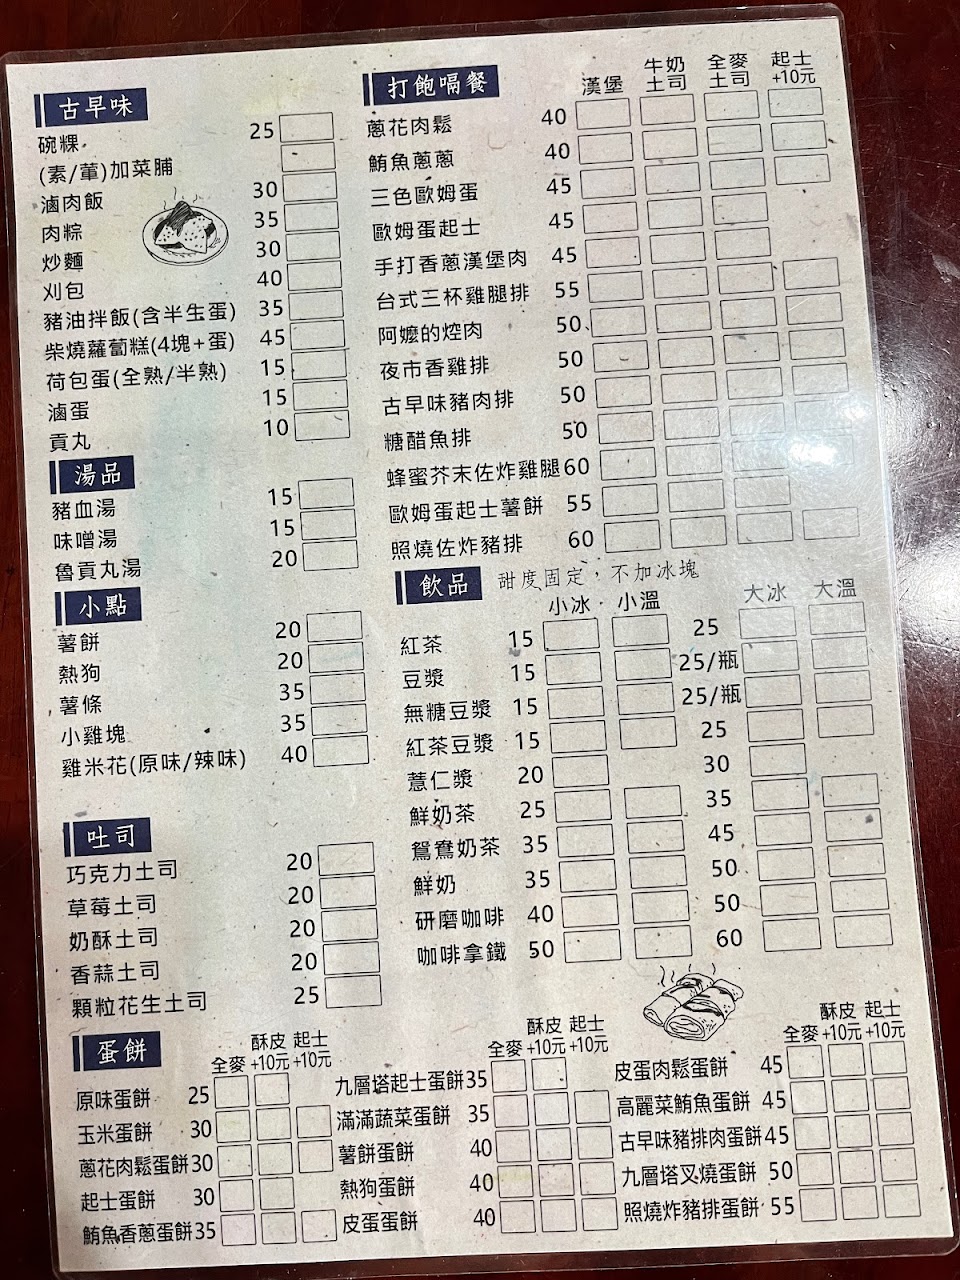 古早味
碗粿 25
(素/葷)加菜脯
滷肉飯 30
肉粽 35
炒麵 30
刈包 40
豬油拌飯(含半生蛋) 35
柴燒蘿蔔糕(4塊+蛋) 45
荷包蛋(全熟/半熟) 15
滷蛋 15
貢丸 10
湯品
豬血湯 15
味噌湯 15
魯貢丸湯 20
小點
薯餅 20
熱狗 20
薯條 35
小雞塊 35
雞米花(原味/辣味) 40
吐司
巧克力土司 20
草莓土司 20
奶酥土司 20
香蒜土司 20
顆粒花生土司 25
打飽嗝餐 漢堡 牛奶土司 全麥土司 起士+10元
蔥花肉鬆 40
鮪魚蔥蔥 40
三色歐姆蛋 45
歐姆蛋起士 45
手打香蔥漢堡肉 45
台式三杯雞腿排 55
阿嬤的焢肉 50
夜市香雞排 50
古早味豬肉排 50
糖醋魚排 50
蜂蜜芥末佐炸雞腿 60
歐姆蛋起士薯餅 55
照燒佐炸豬排 60
飲品 甜度固定，不加冰塊
小冰 小溫 大冰 大溫
紅茶 15 25
豆漿 15 25/瓶
無糖豆漿 15 25/瓶
紅茶豆漿 15 25
薏仁漿 20 30
鮮奶茶 25 35
鴛鴦奶茶 35 45
鮮奶 35 50
研磨咖啡 40 50
咖啡拿鐵 50 60
蛋餅
全麥 酥皮+10元 起士+10元
原味蛋餅 25
玉米蛋餅 30
蔥花肉鬆蛋餅 30
起士蛋餅 30
鮪魚香蔥蛋餅 35
全麥 酥皮+10元 起士+10元
九層塔起士蛋餅 35
滿滿蔬菜蛋餅 35
薯餅蛋餅 40
熱狗蛋餅 40
皮蛋蛋餅 40
全麥 酥皮+10元 起士+10元
皮蛋肉鬆蛋餅 45
高麗菜鮪魚蛋餅 45
古早味豬排肉蛋餅 45
九層塔叉燒蛋餅 50
照燒炸豬排蛋餅 55